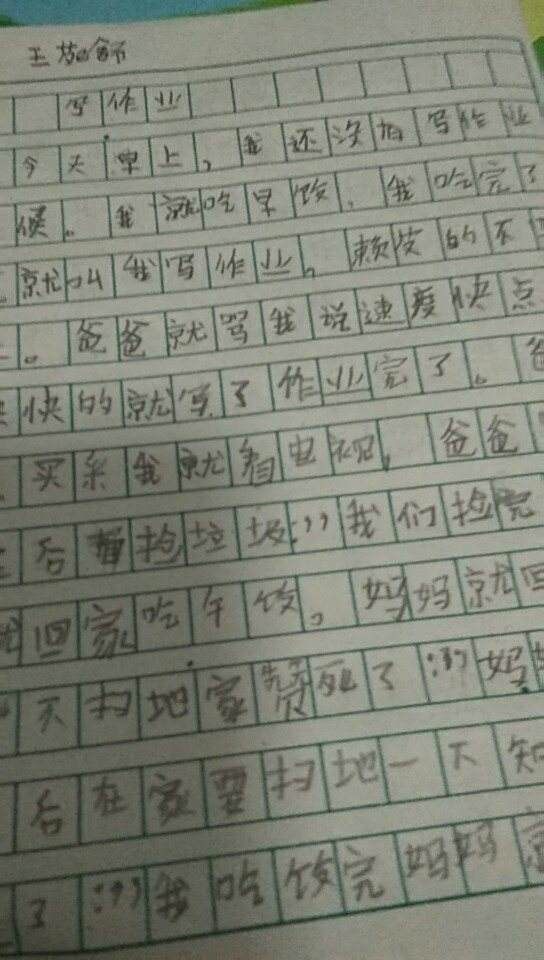 王
写作业
今天早上，我还没有写作业
候。我就吃早饭，我吃完了
就叫我写作业，赖皮的不
。爸爸就骂我说速度快点
快的就写了作业完了。爸
买来我就看电视，爸爸
后捡垃圾”我们捡完
回家吃午饭。妈妈就回
不扫地家死了”妈
后在家要扫地一下知
了”我吃饭完妈妈